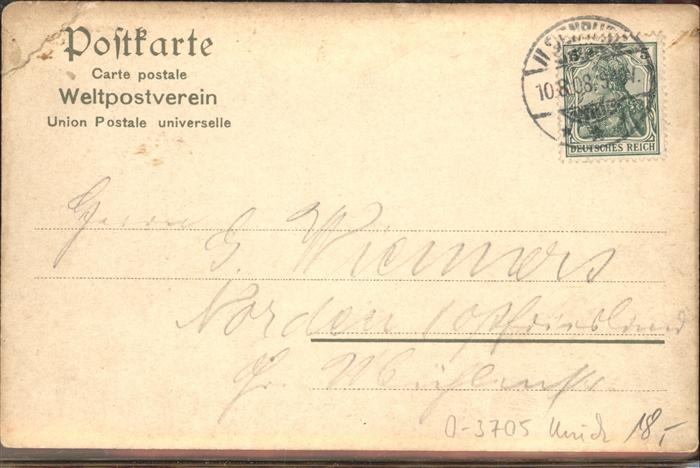 Postkarte
Carte postale
Weltpostverein
Union Postale universelle
10.8.08.
5 5
DEUTSCHES REICH
Herrn
G. Wiemers
Norden (Ostfriesland
Gr. Mühlenstr.
O-3705 18,-